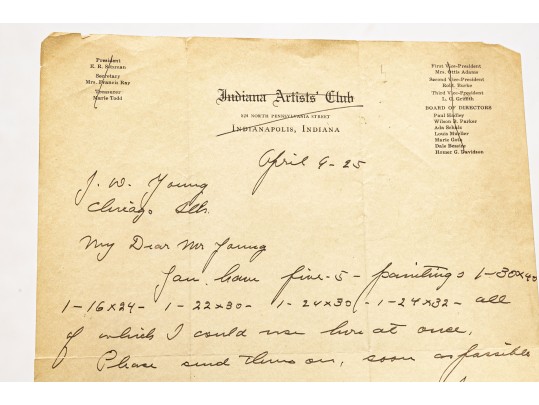 President
Secretary
Mrs. Francis Ray
Treasurer
Marie Todd
Indiana Artists' Club
NORTH PENNSYLVANIA STREET
INDIANAPOLIS, INDIANA
First Vice-President
Mrs. Ottis Adams
Second Vice-President
Third Vice-President
L. O. Griffith
BOARD OF DIRECTORS
Paul Hadley
Wilson B. Parker
Ada Shulz
Louis Mueller
Marie Goth
Dale Bessire
Homer G. Davidson
April 9-25
J. W. Young
Chicago Ills.
My Dear Mr Young
You have five-5- paintings 1-30x40
1-16x24- 1-22x30- 1-24x30- 1-24x32- all
of which I could use here at once.
Please send them on, soon as possible